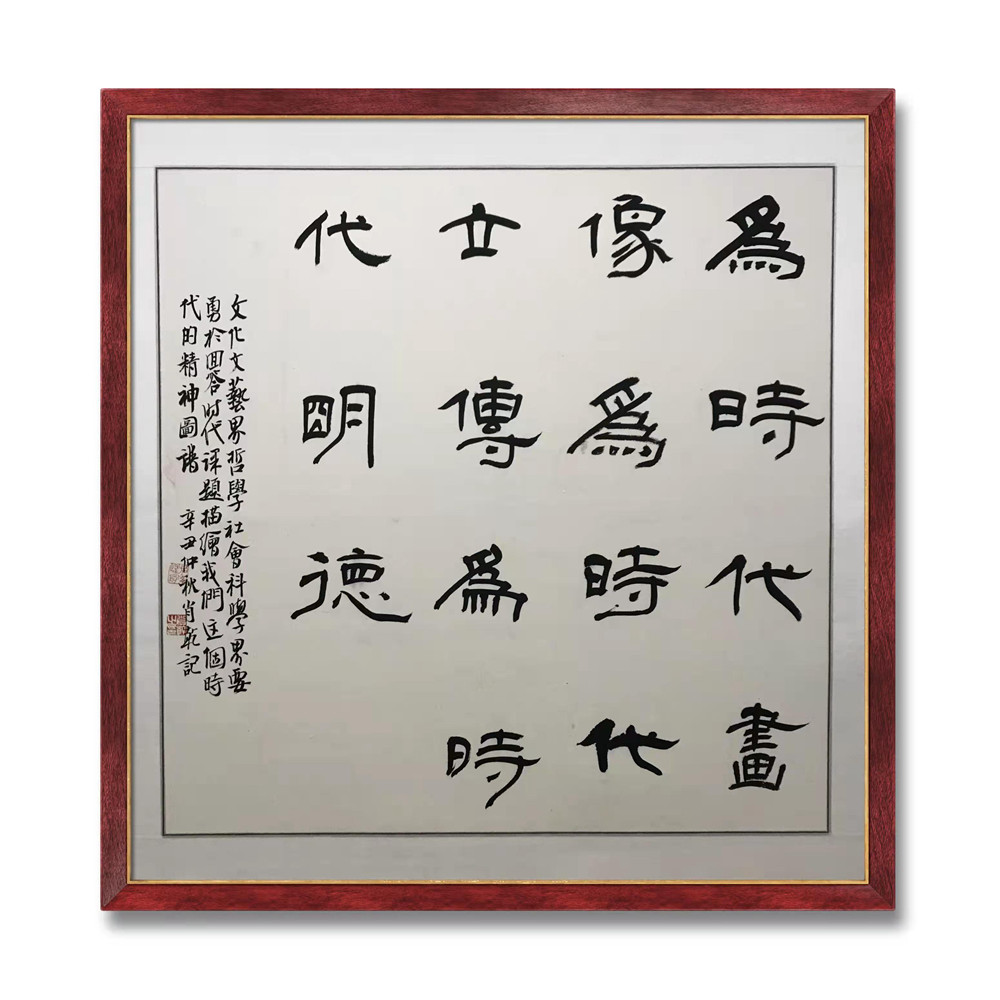 爲時代畫
像爲時代
立傳爲時
代明德
文化文藝界哲學社會科學界要
勇於回答时代课題描繪我們这個時
代的精神圖譜 辛丑仲秋肖乾記